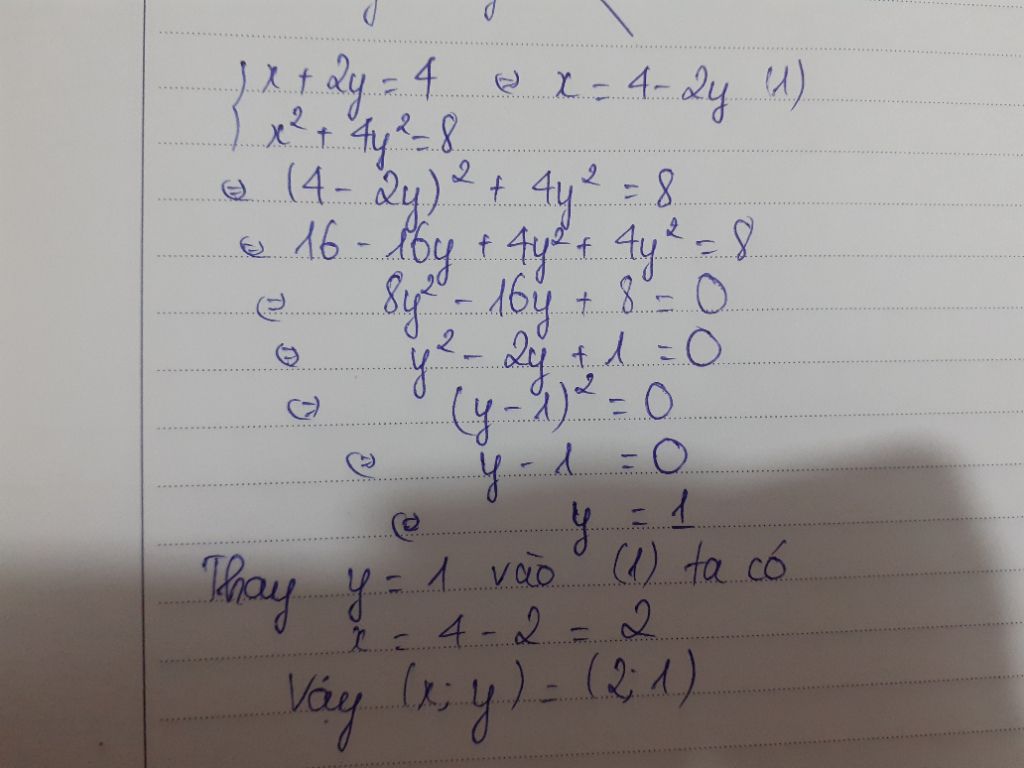 x + 2y = 4 ⇔ x = 4 - 2y (1)
x² + 4y² = 8
⇔ (4 - 2y)² + 4y² = 8
⇔ 16 - 16y + 4y² + 4y² = 8
⇔ 8y² - 16y + 8 = 0
⇔ y² - 2y + 1 = 0
⇔ (y - 1)² = 0
⇔ y - 1 = 0
⇔ y = 1
Thay y = 1 vào (1) ta có
x = 4 - 2 = 2
Vậy (x; y) = (2; 1)